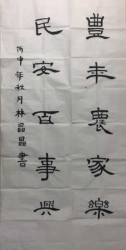 豊年農家樂
民安百事興
丙申年秋月林晶晶書